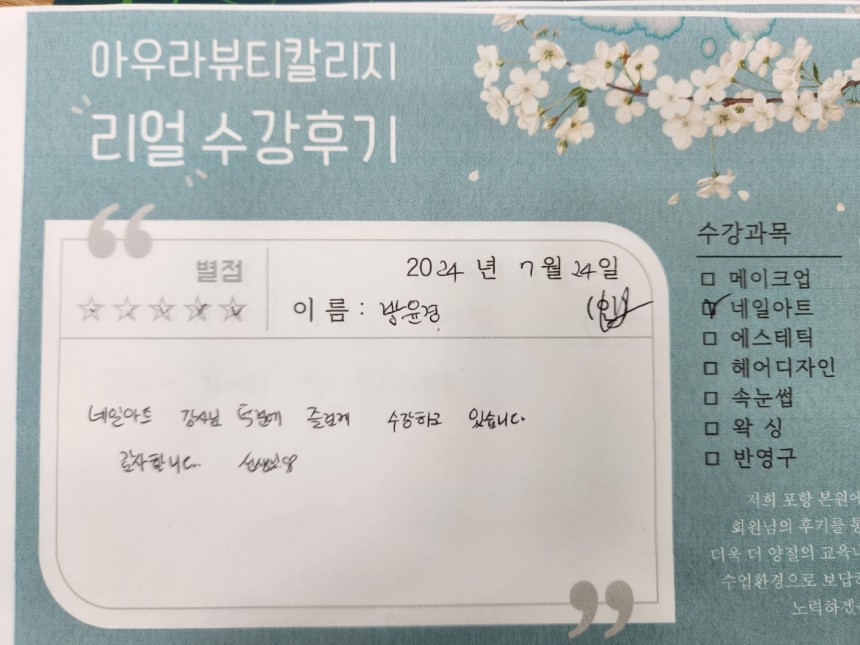 아우라뷰티칼리지
리얼 수강후기
별점
2024 년 7 월 24 일
이 름 : 방윤경
(인)
네일아트 강사님 덕분에 즐겁게 수강하고 있습니다.
감사합니다. 선생님
수강과목
메이크업
네일아트
에스테틱
헤어디자인
속눈썹
왁 싱
반영구
저희 포항 본원에
회원님의 후기를 통
더욱 더 양질의 교육
수업환경으로 보답
노력하겠